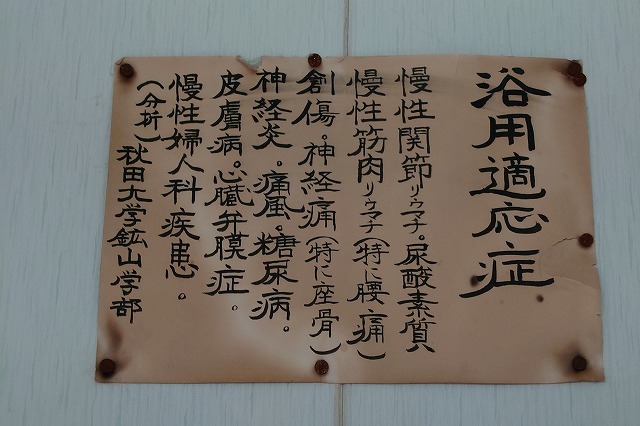 浴用適応症
慢性関節リウマチ。尿酸素質
慢性筋肉リウマチ(特に腰痛)
創傷。神経痛(特に座骨)
神経炎。痛風。糖尿病。
皮膚病。心臓弁膜症。
慢性婦人科疾患。
(分析)秋田大学鉱山学部